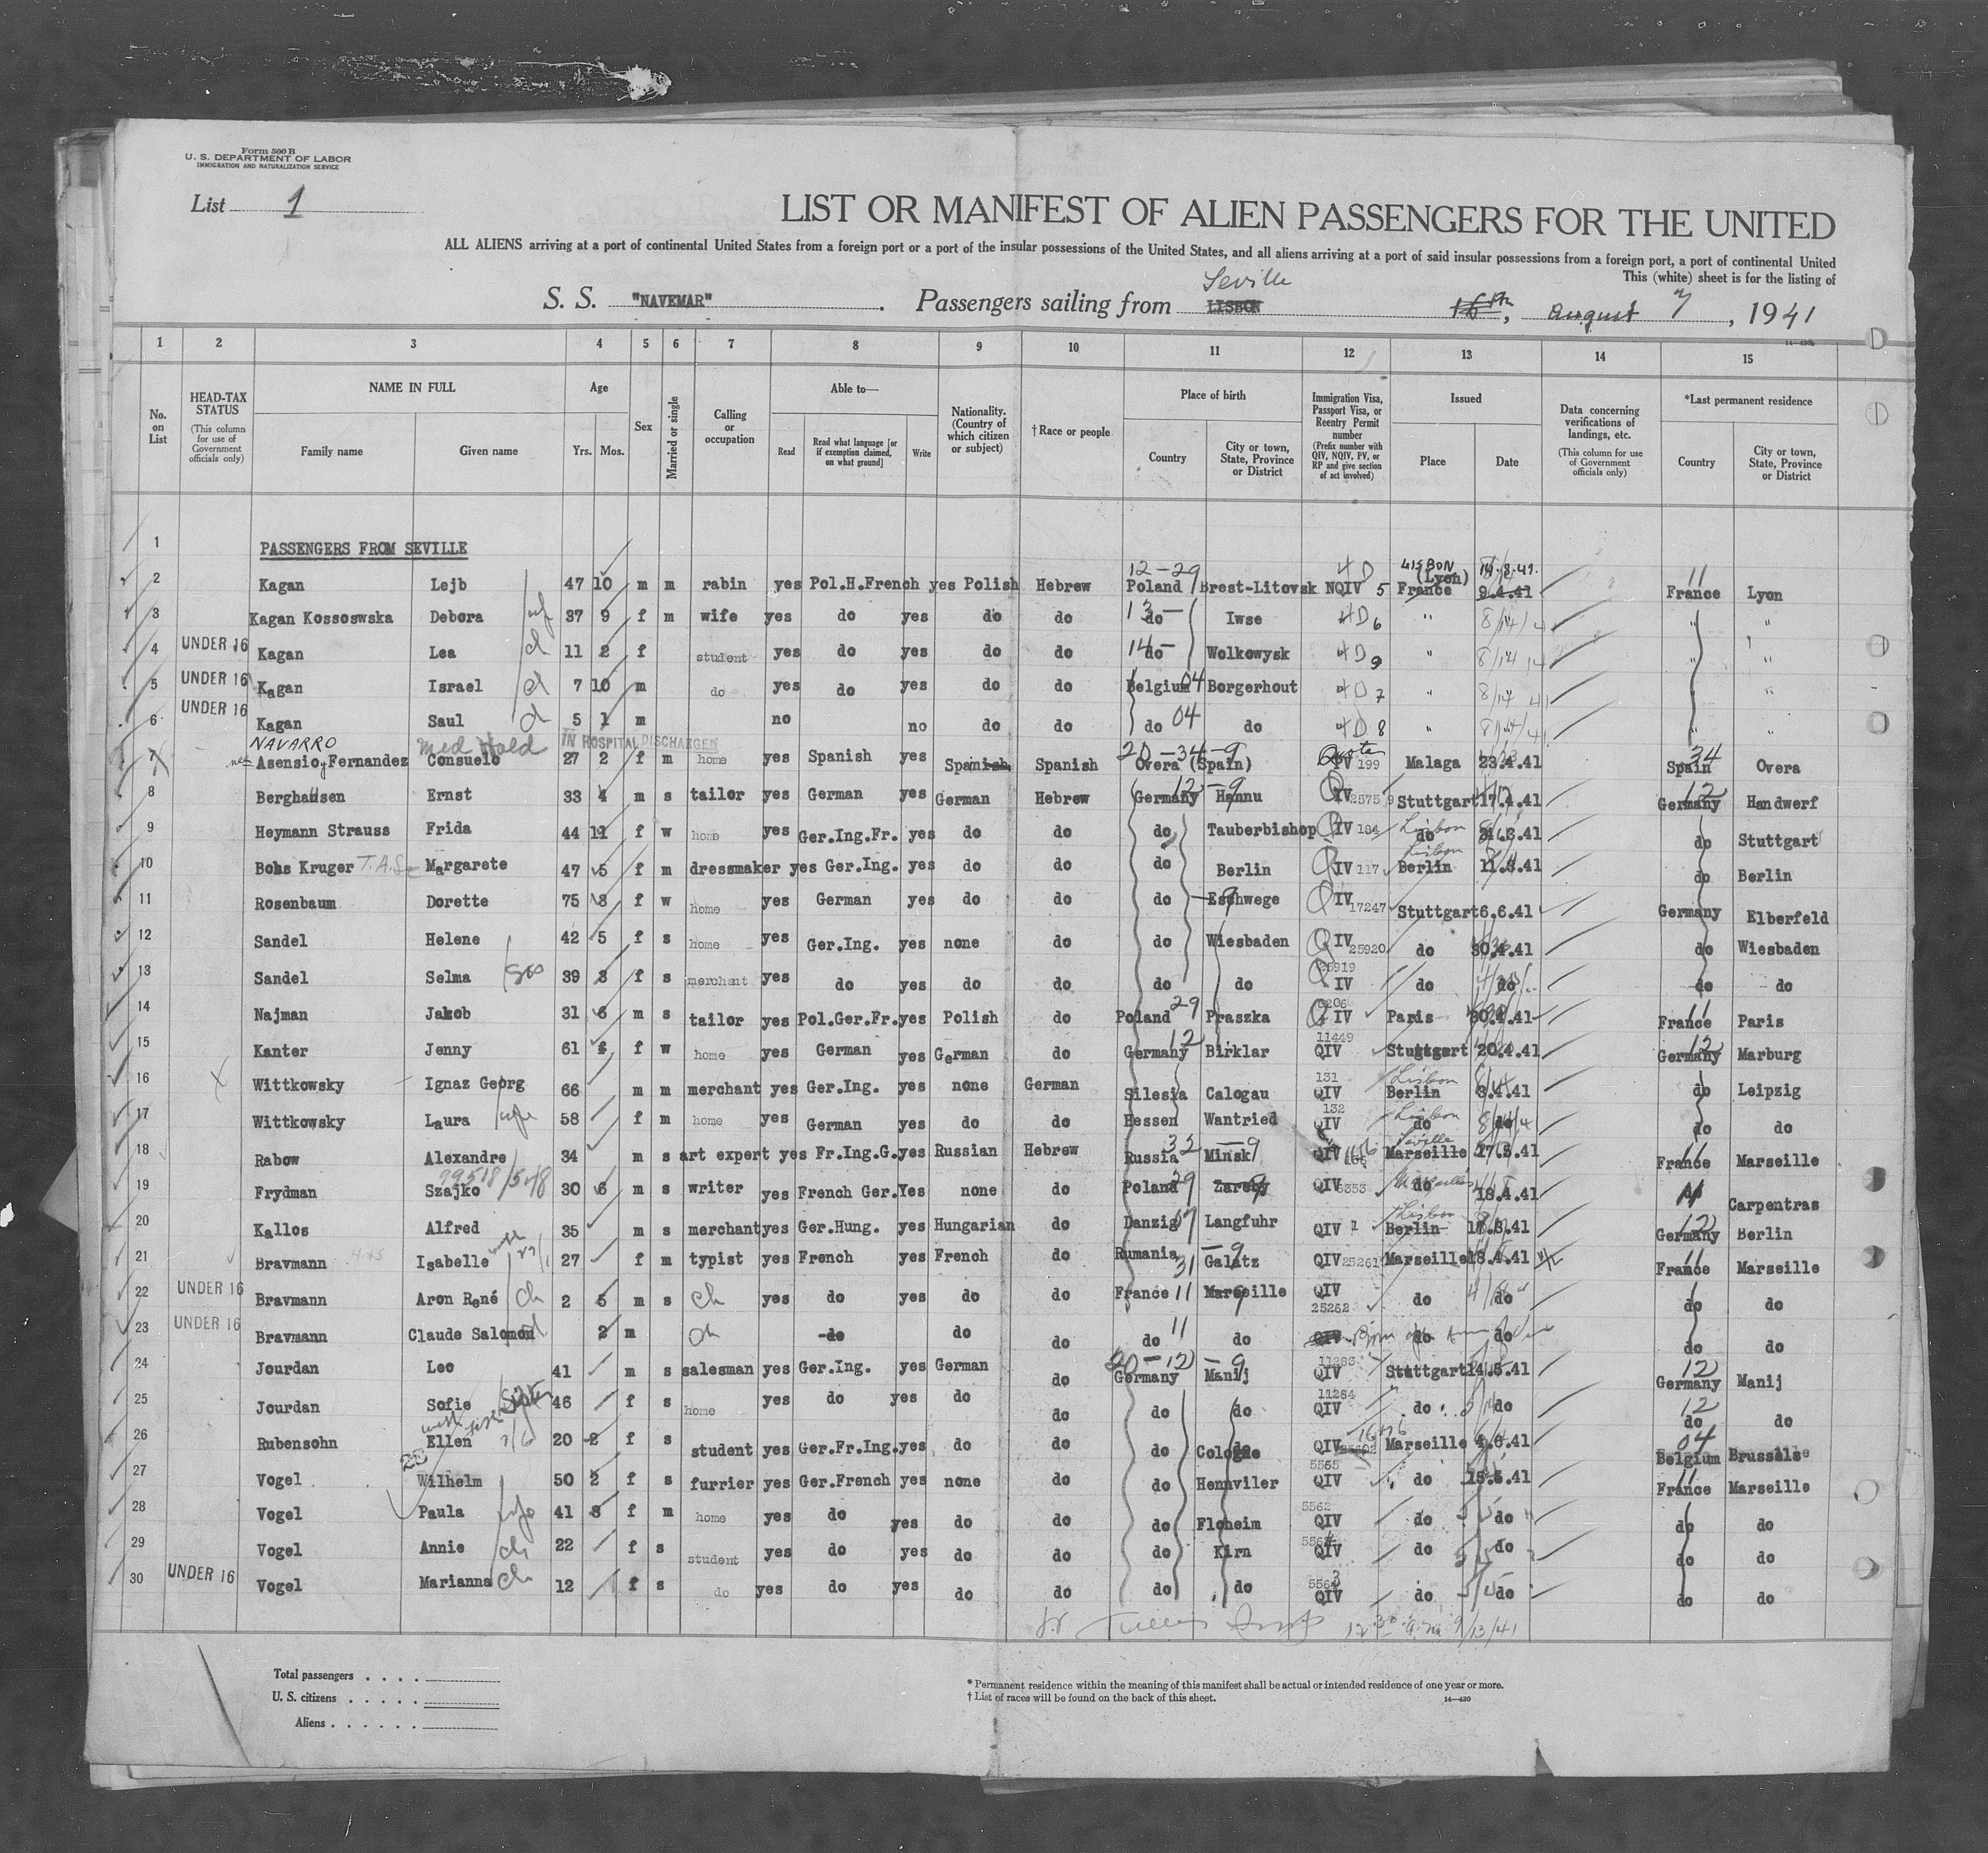 Form 500 B
U. S. DEPARTMENT OF LABOR
IMMIGRATION AND NATURALIZATION SERVICE
List 1
LIST OR MANIFEST OF ALIEN PASSENGERS FOR THE UNITED
ALL ALIENS arriving at a port of continental United States from a foreign port or a port of the insular possessions of the United States, and all aliens arriving at a port of said insular possessions from a foreign port, a port of continental United
This (white) sheet is for the listing of
Seville
S. S. "NAVEMAR". Passengers sailing from LISBON 16th, August 7, 1941
1 2 3 4 5 6 7 8 9 10 11 12 13 14 15
No. on List
HEAD-TAX STATUS (This column for use of Government officials only)
NAME IN FULL Family name Given name
Age Yrs. Mos.
Sex
Married or single
Calling or occupation
Able to— Read Read what language [or if exemption claimed, on what ground] Write
Nationality. (Country of which citizen or subject)
† Race or people
Place of birth Country City or town, State, Province or District
Immigration Visa, Passport Visa, or Reentry Permit number (Prefix number with QIV, NQIV, PV, or RP and give section of act involved)
Issued Place Date
Data concerning verifications of landings, etc. (This column for use of Government officials only)
*Last permanent residence Country City or town, State, Province or District
1 PASSENGERS FROM SEVILLE
12-29 4D LISBON 14.8.41. 11
2 Kagan Lejb 47 10 m m rabin yes Pol.H.French yes Polish Hebrew Poland Brest-Litovsk NQIV 5 (Lyon) France 9.4.41 France Lyon
3 Kagan Kossoswska Debora wf 37 9 f m wife yes do yes do do 13- do Iwse 4D 6 " 8/14/4 " "
4 UNDER 16 Kagan Lea ch 11 2 f student yes do yes do do 14- do Wolkowysk 4D 9 " 8/14 " "
5 UNDER 16 Kagan Israel ch 7 10 m do yes do yes do do Belgium 04 Borgerhout 4D 7 " 8/14 41 " "
6 UNDER 16 Kagan Saul ch 5 1 m no no do do do 04 do 4D 8 " 8/14/41 " "
NAVARRO Med Hold IN HOSPITAL DISCHARGED 20-34-9 Quota 34
7 Asensio y Fernandez Consuelo 27 2 f m home yes Spanish yes Spanish Spanish Overa (Spain) IV 199 Malaga 23.4.41 Spain Overa
8 Berghausen Ernst 33 4 m s tailor yes German yes German Hebrew Germany 12-9 Hannu QIV 2575 Stuttgart 17.4.41 Germany 12 Handwerf
9 Heymann Strauss Frida 44 11 f w home yes Ger.Ing.Fr. yes do do do Tauberbishop QIV 184 Lisbon do do Stuttgart
10 Bohs Kruger T.A.S. Margarete 47 5 f m dressmaker yes Ger.Ing. yes do do do Berlin QIV 117 Lisbon Berlin 11.8.41 do Berlin
11 Rosenbaum Dorette 75 8 f w home yes German yes do do do Eschwege QIV 17247 Stuttgart 6.6.41 Germany Elberfeld
12 Sandel Helene 42 5 f s home yes Ger.Ing. yes none do do Wiesbaden QIV 25920 do 30.4.41 do Wiesbaden
13 Sandel Selma sis 39 8 f s merchant yes do yes do do do do QIV 25919 do do do do
14 Najman Jakob 31 6 m s tailor yes Pol.Ger.Fr. yes Polish do Poland 29 Praszka QIV 6206 Paris 30.4.41 France 11 Paris
15 Kanter Jenny 61 f w home yes German yes German do Germany 12 Birklar 11449 QIV Stuttgart 20.4.41 Germany 12 Marburg
16 Wittkowsky Ignaz Georg 66 m m merchant yes Ger.Ing. yes none German Silesia Calogau 131 QIV Lisbon Berlin 8.4.41 do Leipzig
17 Wittkowsky Laura wfe 58 f m home yes German yes do do Hessen Wantried 132 QIV Lisbon do do do do
18 Rabow Alexandre 34 m s art expert yes Fr.Ing.G. yes Russian Hebrew Russia 32 Minsk -9 QIV 166 Seville Marseille 17.5.41 France 11 Marseille
19 Frydman Szajko 99518/548 30 6 m s writer yes French Ger. Yes none do Poland 29 Zareby QIV 6353 Marseilles do 18.4.41 11 Carpentras
20 Kallos Alfred 35 m s merchant yes Ger.Hung. yes Hungarian do Danzig 07 Langfuhr QIV 1 Lisbon Berlin 17.8.41 Germany 12 Berlin
21 Bravmann Isabelle 27 f m typist yes French yes French do Rumania 31 Galatz -9 QIV 25261 Marseille 18.4.41 France 11 Marseille
22 UNDER 16 Bravmann Aron René ch 2 5 m s ch yes do yes do do France 11 Marseille QIV 25262 do do do do
23 UNDER 16 Bravmann Claude Salomon 2 m ch do do do 11 do QIV do do do do
24 Jourdan Leo 41 m s salesman yes Ger.Ing. yes German do 20-12-9 Germany Manij 11283 QIV Stuttgart 14.5.41 12 Germany Manij
25 Jourdan Sofie Sister 46 f s home yes do yes do do do do 11284 QIV do do 12 do do
26 Rubensohn Ellen 20 2 f s student yes Ger.Fr.Ing. yes do do do Cologne QIV 1676 Marseille 4.6.41 04 Belgium Brussels
27 Vogel Wilhelm 50 2 f s furrier yes Ger.French yes none do do Hennviler 5565 QIV do 15.5.41 France 11 Marseille
28 Vogel Paula wfe 41 8 f m home yes do yes do do do Floheim 5562 QIV do do do do
29 Vogel Annie ch 22 f s student yes do yes do do do Kirn 5564 QIV do do do do
30 UNDER 16 Vogel Marianna ch 12 f s do yes do yes do do do do 5563 QIV do do do do
12.30 a.m 9/13/41
Total passengers . . . .
U. S. citizens . . . . .
Aliens . . . . . .
* Permanent residence within the meaning of this manifest shall be actual or intended residence of one year or more.
† List of races will be found on the back of this sheet. 14—430